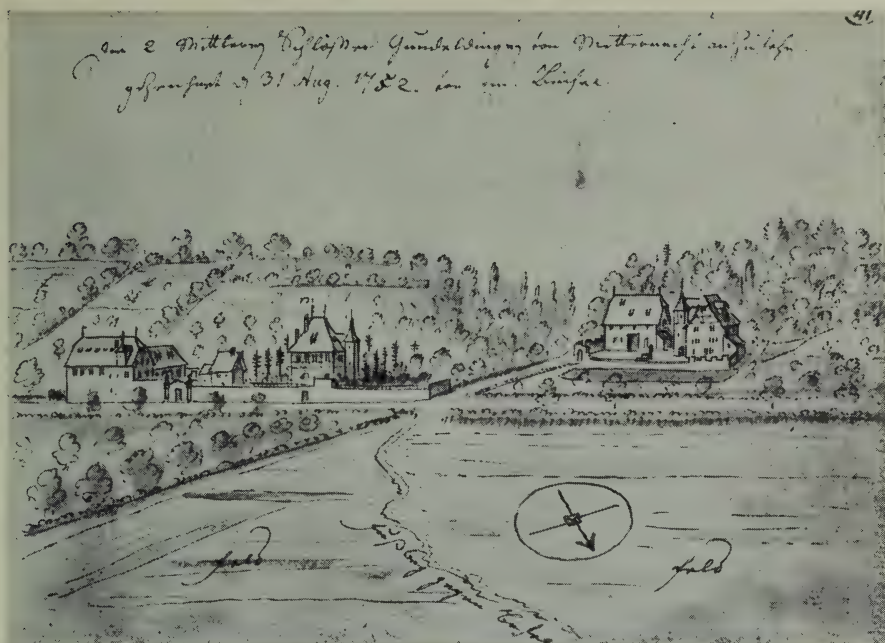 41
Die 2 Mittlern Schlösser Gundeldingen von Mitternacht anzusehn.
gezeichnet d 31 Aug. 1752. von em. Büchel.
feld
feld
Fußweg gegen Basel